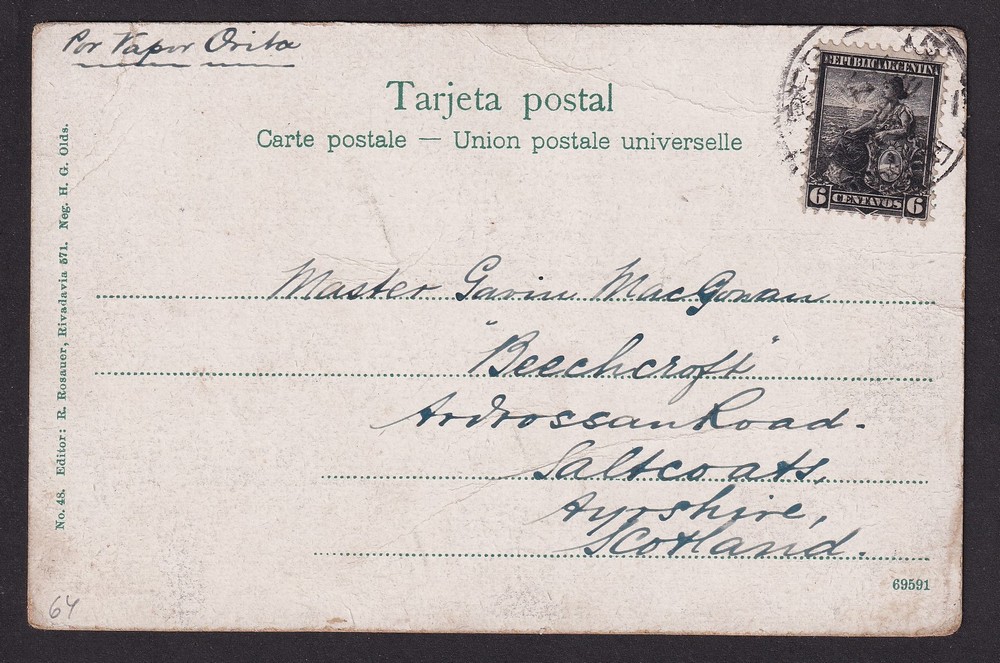 Por Vapor Orita
Tarjeta postal
Carte postale — Union postale universelle
REPUBLICA ARGENTINA
6 CENTAVOS 6
Master Gavin MacGowan
"Beechcroft"
Ardrossan Road.
Saltcoats,
Ayrshire,
Scotland.
No. 48. Editor: R. Rosauer, Rivadavia 571. Neg. H. G. Olds.
69591
64